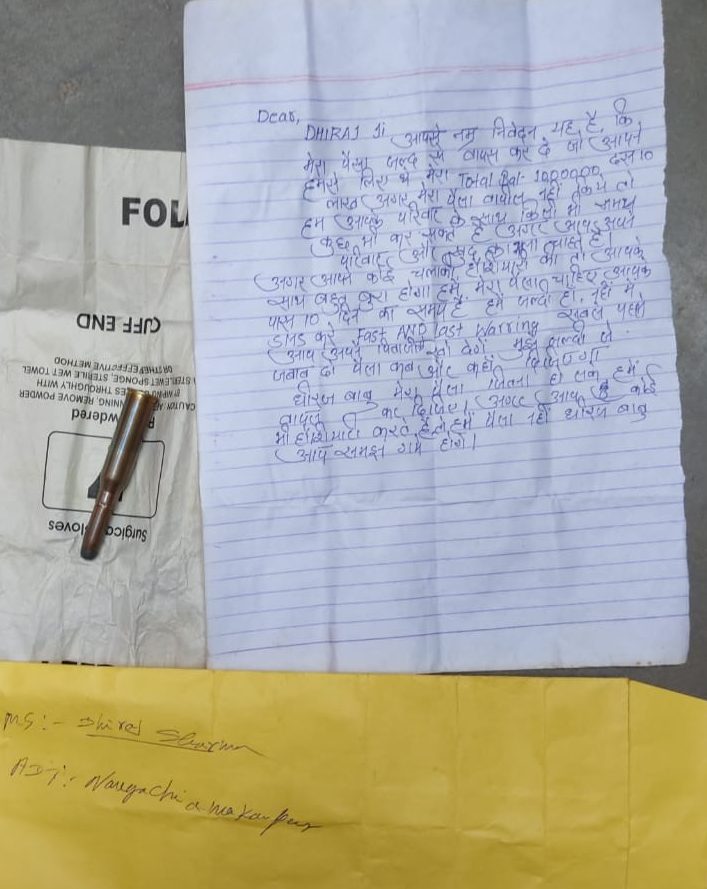 Dear,
DHIRAJ Ji आपसे नम्र निवेदन यह है, कि
मेरा पैसा जल्द से वापस कर दे जो आपने
हमसे लिए थे मेरा Total Bal- 1000000 दस 10
लाख अगर मेरा पैसा वापस नहीं किये तो
हम आपके परिवार के साथ किसी भी समय
कुछ भी कर सकते हैं अगर आप अपने
परिवार और खुद का भला चाहते हैं।
अगर आपने कोई चलाकी होशियारी की तो आपके
साथ बहुत बुरा होगा हमें मेरा पैसा चाहिए आपके
पास 10 दिन का समय है हमें जल्दी ही, नहीं तो
SMS करे Fast AND Last Warring सबसे पहले
आप अपने खो देगें मुझे जल्दी से
जवाब दो पैसा कब और कहाँ
धीरज बाबु मेरा पैसा जितना हो सके हमें
वापस कर दिजिए। अगर आप कोई
भी होशियारी करते है तो हमें पैसा नहीं धीरज बाबु
आप समझ गये होंगे।
FOL
CUFF END
CAUTION: AFTER DONNING, REMOVE POWDER
BY WIPING GLOVES THOROUGHLY WITH
A STERILE WET SPONGE, STERILE WET TOWEL
OR OTHER EFFECTIVE METHOD
Surgical Gloves
MS:- Dhiraj Sharma
ADJ:- Naugachia makanpur